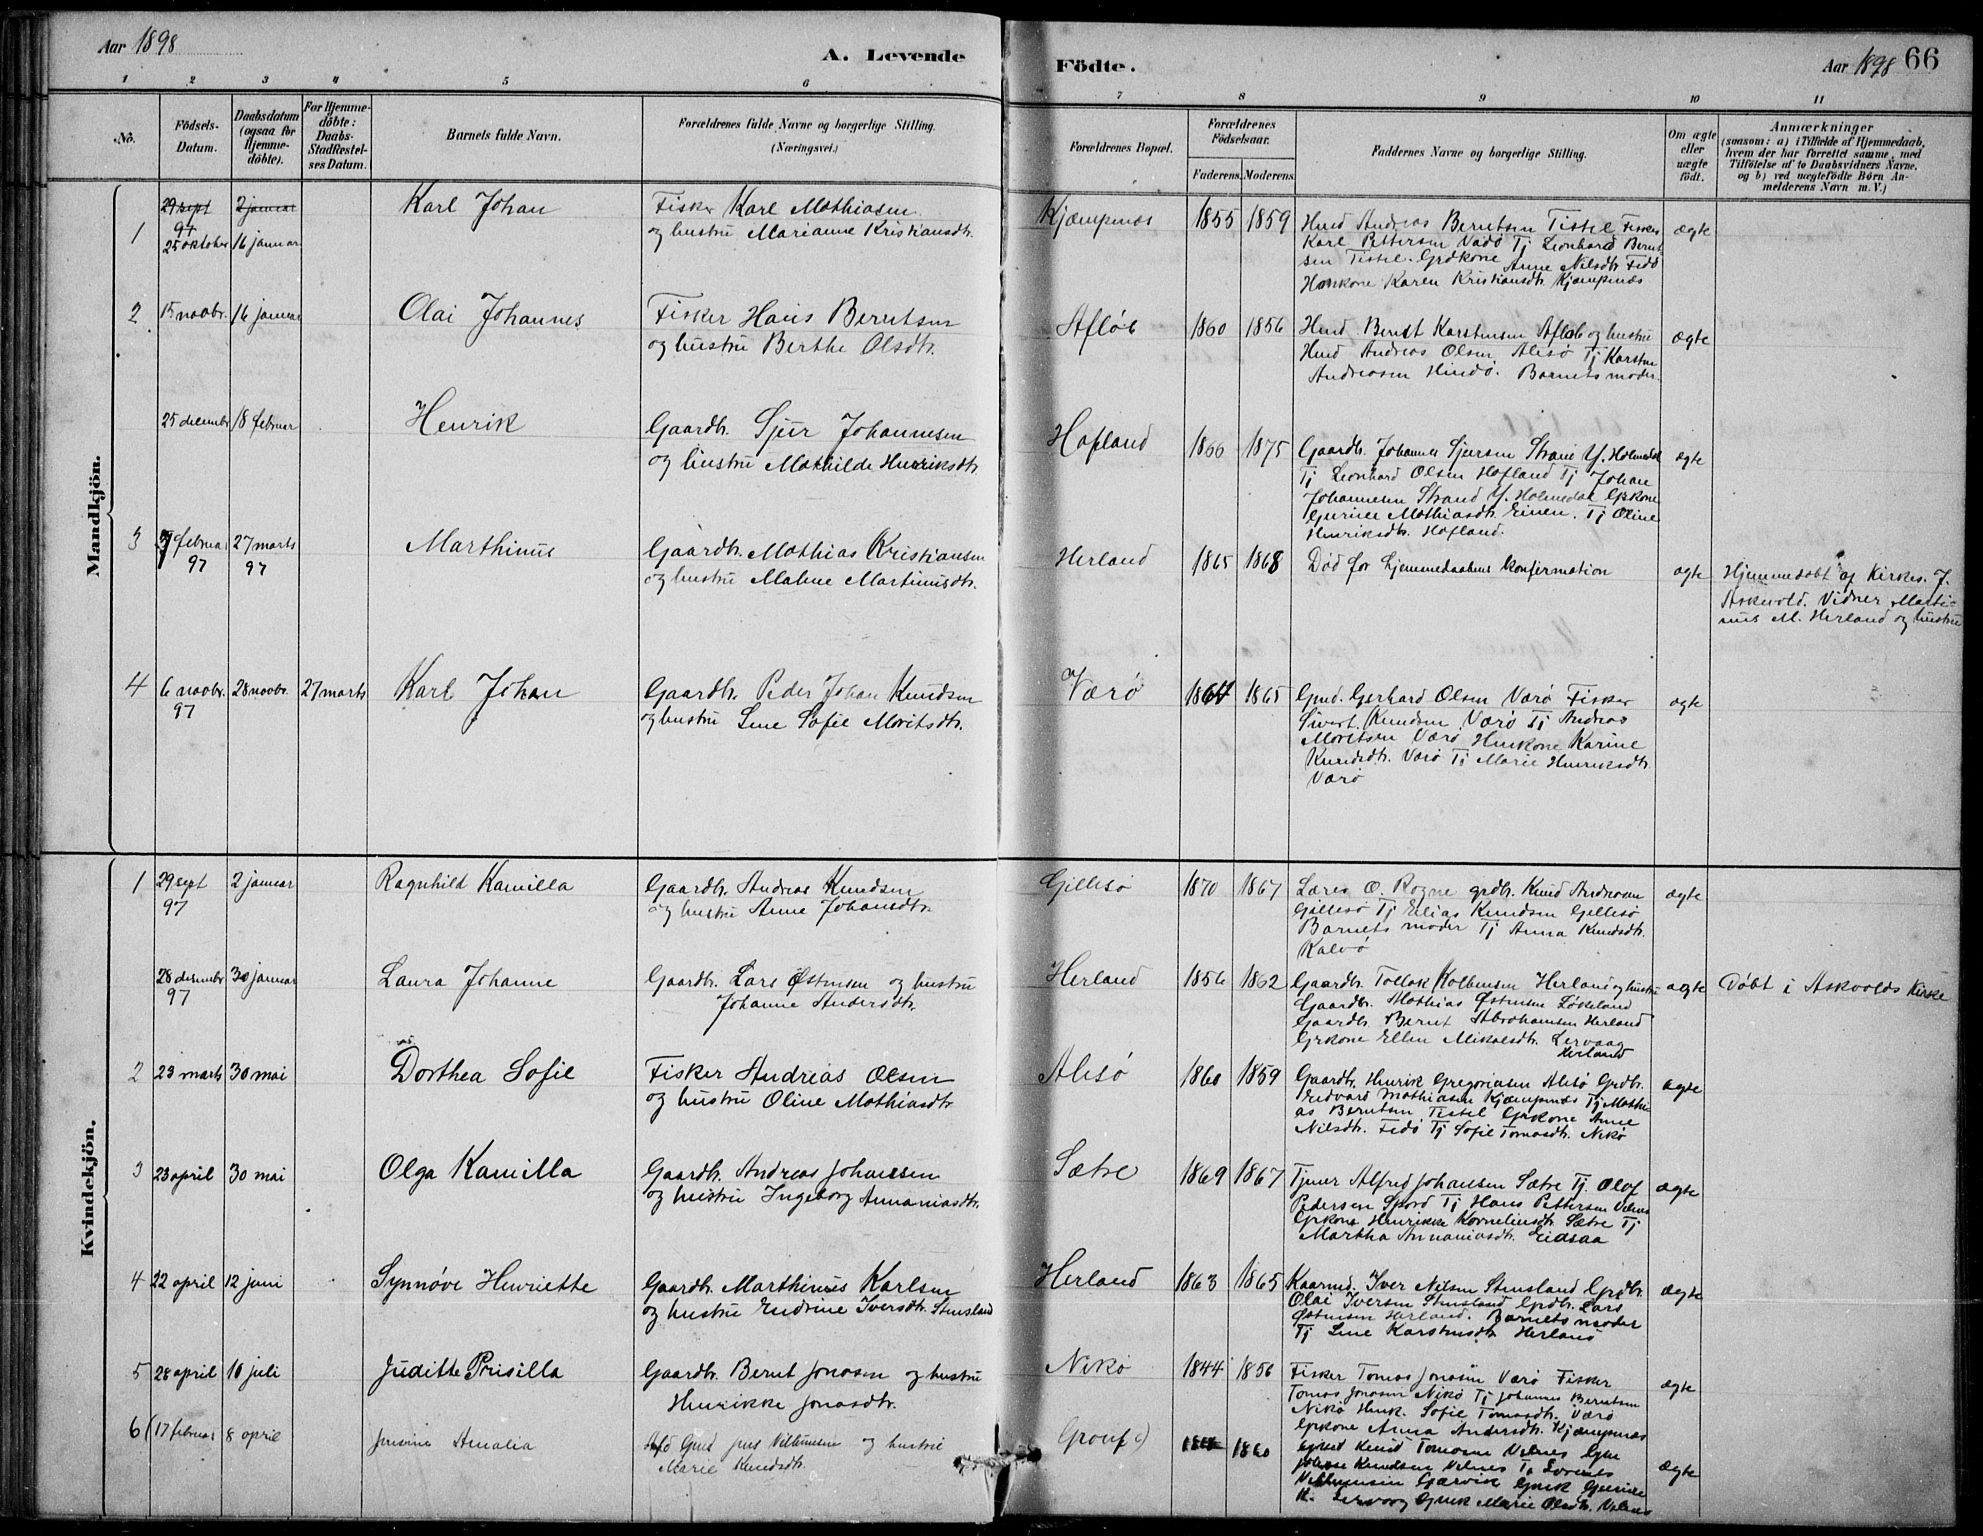 Aar 1898
A. Levende Födte.
Aar 1898 66
1 2 3 4 5 6 7 8 9 10 11
No.
Födsels-Datum.
Daabsdatum (ogsaa for Hjemme-döbte).
For Hjemme-döbte: Daabs-Stadfæstel-ses Datum.
Barnets fulde Navn.
Forældrenes fulde Navne og borgerlige Stilling.
(Næringsvei.)
Forældrenes Bopæl.
Forældrenes Födselsaar.
Faderens. Moderens.
Faddernes Navne og borgerlige Stilling.
Om ægte eller uægte födt.
Anmærkninger
(saasom: a) i Tilfælde af Hjemmedaab,
hvem der har forrettet samme, med
Tilföielse af to Daabsvidners Navne,
og b) ved uægtefödte Börn An-
melderens Navn m. V.)
Mandkjön.
29 sept 2 januar
97
1 25 oktober 16 januar Karl Johan
Fisker Karl Mathiasen
og hustru Marianne Kristiansdtr.
Kjæmpenæs 1855 1859
Hmd Andreas Berntsen Tistel Fisker
Karl Pettersen Værø Tj Leonhard Bernt
sen Tistel. Grdkone Anne Nilsdtr. Fedø
Huskone Karen Kristiansdtr. Kjæmpenæs
ægte
2 15 novbr. 16 januar Olai Johannes
Fisker Hans Berntsen
og hustru Berthe Olsdtr.
Afløb 1860 1856
Hmd Berndt Karstensen Afløb og hustru
Hmd Andreas Olsen Alesø Tj Karsten
Andreasen Hindø. Barnets moder.
ægte
25 decembr 18 februar Henrik
Gaardbr. Sjur Johannesen
og hustru Mathilde Henriksdtr.
Hofland 1866 1875
Gaardbr. Johannes Sjursen Strand Y. Holmedal
Tj Leonhard Olsen Hofland Tj Johan
Johannesen Strand Y. Holmedal Grkone
Gurine Mathiasdtr. Einen. Tj Oline
Henriksdtr. Hofland.
ægte
3 7 februar 27 marts Marthinus
97 97
Gaardbr. Mathias Kristiansen
og hustru Malene Martinusdtr.
Herland 1865 1868
Død før hjemmedaabens konfirmation
ægte
Hjemmedøbt af Kirkes. J.
Askvold. Vidner Marti-
nus M. Herland og hustru
4 6 novbr. 28 novbr. 27 marts Karl Johan
97
Gaardbr. Peder Johan Knudsen
og hustru Lene Sofie Moritsdtr.
Værø 1864 1865
Gmd. Gerhard Olsen Værø Fisker
Sivert Knudsen Værø Tj Andreas
Moritsen Værø Huskone Karine
Knudsdtr. Værø Tj Marie Henriksdtr.
Værø
ægte
Kvindekjön.
1 29 sept 2 januar Ragnhild Kamilla
97
Gaardbr. Andreas Knudsen
og hustru Anne Johansdtr.
Gillesø 1870 1867
Lærer O. Rogne grdbr. Knud Andreasen
Gillesø Tj Elias Knudsen Gillesø
Barnets moder Tj Anna Knudsdtr.
Kalvø
ægte
28 desember 30 januar Laura Johanne
97
Gaardbr. Lars Østensen og hustru
Johanne Andersdtr.
Herland 1856 1862
Gaardbr. Tollak Kolbensen Herland og hustru
Gaardbr. Mathias Østensen Løkeland
Gaardbr. Bernt Abrahamsen Herland
Grkone Ellen Mikalsdtr. Lervaag
Herland
ægte
Døbt i Askvolds kirke
2 23 marts 30 mai Dorthea Sofie
Fisker Andreas Olsen
og hustru Oline Mathiasdtr.
Alesø 1860 1859
Gaardbr. Henrik Gregoriusen Alesø Grdbr.
Endvard Mathiasen Kjæmpenæs Tj Mathi
as Berntsen Tistel Grkone Anne
Nilsdtr. Fedø Tj Sofie Tomasdtr. Nikø
ægte
3 23 april 30 mai Olga Kamilla
Gaardbr. Andreas Johansen
og hustru Ingeborg Annaniasdtr.
Sætre 1869 1867
Tjener Alfred Johansen Sætre Tj. Olaf
Pedersen Spord Tj Hans Pettersen Velnes
Grkone Henrikke Korneliusdtr. Sætre Tj
Martha Annaniasdtr. Eidsaa
ægte
4 22 april 12 juni Synnøve Henriette
Gaardbr. Marthinus Karlsen
og hustru Endrine Iversdtr. Stensland
Herland 1863 1865
Kaarmd. Iver Nilsen Stensland Grdbr.
Olai Iversen Stensland Grdbr. Lars
Østensen Herland. Barnets moder
Tj Lene Karstensdtr. Herland
ægte
5 28 april 10 juli Juditte Prisilla
Gaardbr. Bernt Jonasen og hustru
Henrikke Jonasdtr.
Nikø 1844 1856
Fisker Tomas Jonasen Værø Fisker
Tomas Jonasen Nikø Tj Johannes Berntsen
Nikø Husk. Sofie Tomasdtr. Værø
Grkone Anna Andersdtr. Kjæmpenæs
ægte
6 17 februar 8 april Jensine Amalia
Gmd Jens Villumsen og hustru
Marie Knudsdtr.
1860
Gmd Knud Tomasen Velnes
Johan Knudsen Velnes Tj
Villumsen Gjærvik Gmk
Lervaag Gmk Marie Olsdtr. Velnes
ægte